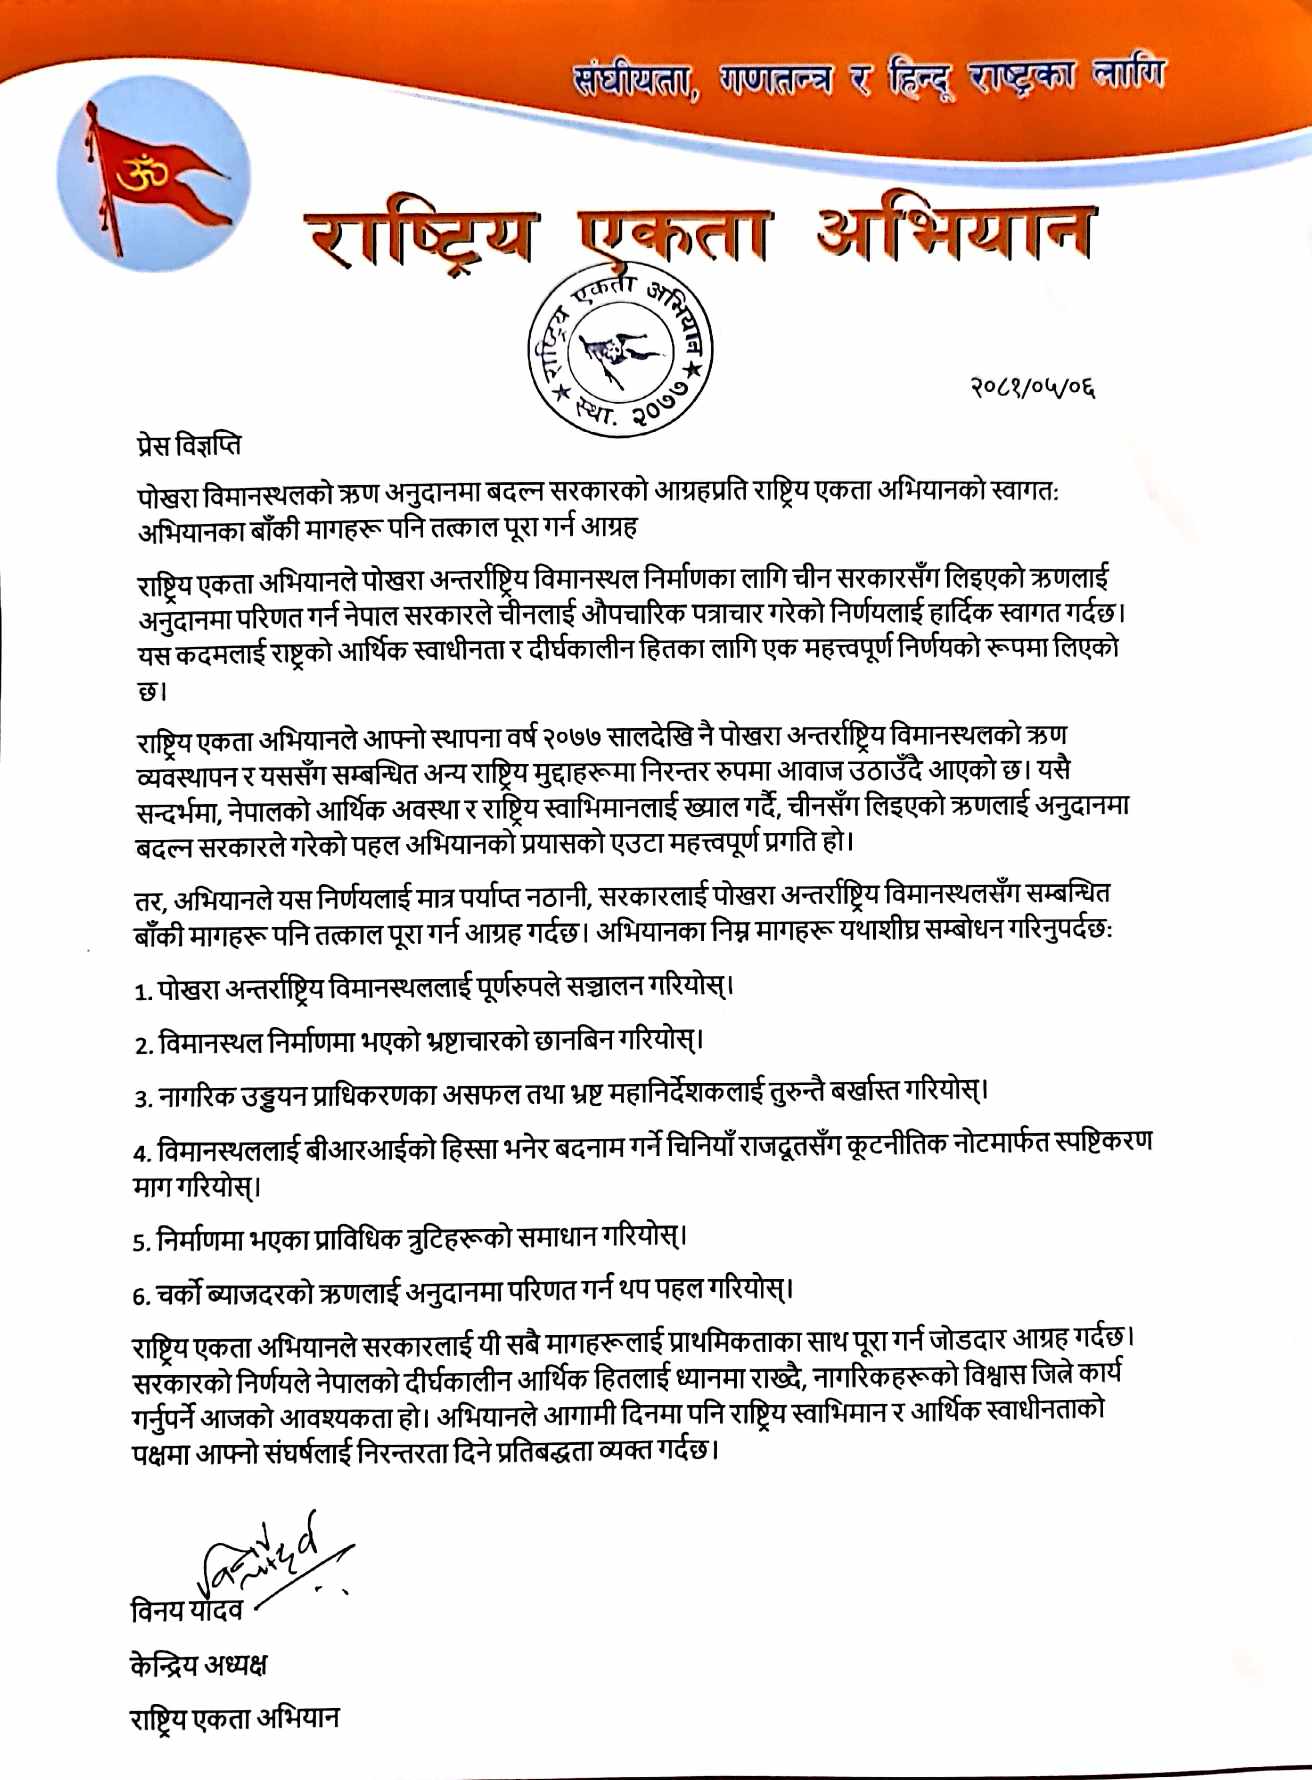 संघीयता, गणतन्त्र र हिन्दू राष्ट्रका लागि
ॐ
राष्ट्रिय एकता अभियान
राष्ट्रिय एकता अभियान
स्था. २०७७
२०८१/०५/०६
प्रेस विज्ञप्ति
पोखरा विमानस्थलको ऋण अनुदानमा बदल्न सरकारको आग्रहप्रति राष्ट्रिय एकता अभियानको स्वागत:
अभियानका बाँकी मागहरू पनि तत्काल पूरा गर्न आग्रह
राष्ट्रिय एकता अभियानले पोखरा अन्तर्राष्ट्रिय विमानस्थल निर्माणका लागि चीन सरकारसँग लिइएको ऋणलाई
अनुदानमा परिणत गर्न नेपाल सरकारले चीनलाई औपचारिक पत्राचार गरेको निर्णयलाई हार्दिक स्वागत गर्दछ।
यस कदमलाई राष्ट्रको आर्थिक स्वाधीनता र दीर्घकालीन हितका लागि एक महत्त्वपूर्ण निर्णयको रूपमा लिएको
छ।
राष्ट्रिय एकता अभियानले आफ्नो स्थापना वर्ष २०७७ सालदेखि नै पोखरा अन्तर्राष्ट्रिय विमानस्थलको ऋण
व्यवस्थापन र यससँग सम्बन्धित अन्य राष्ट्रिय मुद्दाहरूमा निरन्तर रुपमा आवाज उठाउँदै आएको छ। यसै
सन्दर्भमा, नेपालको आर्थिक अवस्था र राष्ट्रिय स्वाभिमानलाई ख्याल गर्दै, चीनसँग लिइएको ऋणलाई अनुदानमा
बदल्न सरकारले गरेको पहल अभियानको प्रयासको एउटा महत्त्वपूर्ण प्रगति हो।
तर, अभियानले यस निर्णयलाई मात्र पर्याप्त नठानी, सरकारलाई पोखरा अन्तर्राष्ट्रिय विमानस्थलसँग सम्बन्धित
बाँकी मागहरू पनि तत्काल पूरा गर्न आग्रह गर्दछ। अभियानका निम्न मागहरू यथाशीघ्र सम्बोधन गरिनुपर्दछ:
1. पोखरा अन्तर्राष्ट्रिय विमानस्थललाई पूर्णरुपले सञ्चालन गरियोस्।
2. विमानस्थल निर्माणमा भएको भ्रष्टाचारको छानबिन गरियोस्।
3. नागरिक उड्डयन प्राधिकरणका असफल तथा भ्रष्ट महानिर्देशकलाई तुरुन्तै बर्खास्त गरियोस्।
4. विमानस्थललाई बीआरआईको हिस्सा भनेर बदनाम गर्ने चिनियाँ राजदूतसँग कूटनीतिक नोटमार्फत स्पष्टिकरण
माग गरियोस्।
5. निर्माणमा भएका प्राविधिक त्रुटिहरूको समाधान गरियोस्।
6. चर्को ब्याजदरको ऋणलाई अनुदानमा परिणत गर्न थप पहल गरियोस्।
राष्ट्रिय एकता अभियानले सरकारलाई यी सबै मागहरूलाई प्राथमिकताका साथ पूरा गर्न जोडदार आग्रह गर्दछ।
सरकारको निर्णयले नेपालको दीर्घकालीन आर्थिक हितलाई ध्यानमा राख्दै, नागरिकहरूको विश्वास जित्ने कार्य
गर्नुपर्ने आजको आवश्यकता हो। अभियानले आगामी दिनमा पनि राष्ट्रिय स्वाभिमान र आर्थिक स्वाधीनताको
पक्षमा आफ्नो संघर्षलाई निरन्तरता दिने प्रतिबद्धता व्यक्त गर्दछ।
विनय यादव
केन्द्रिय अध्यक्ष
राष्ट्रिय एकता अभियान